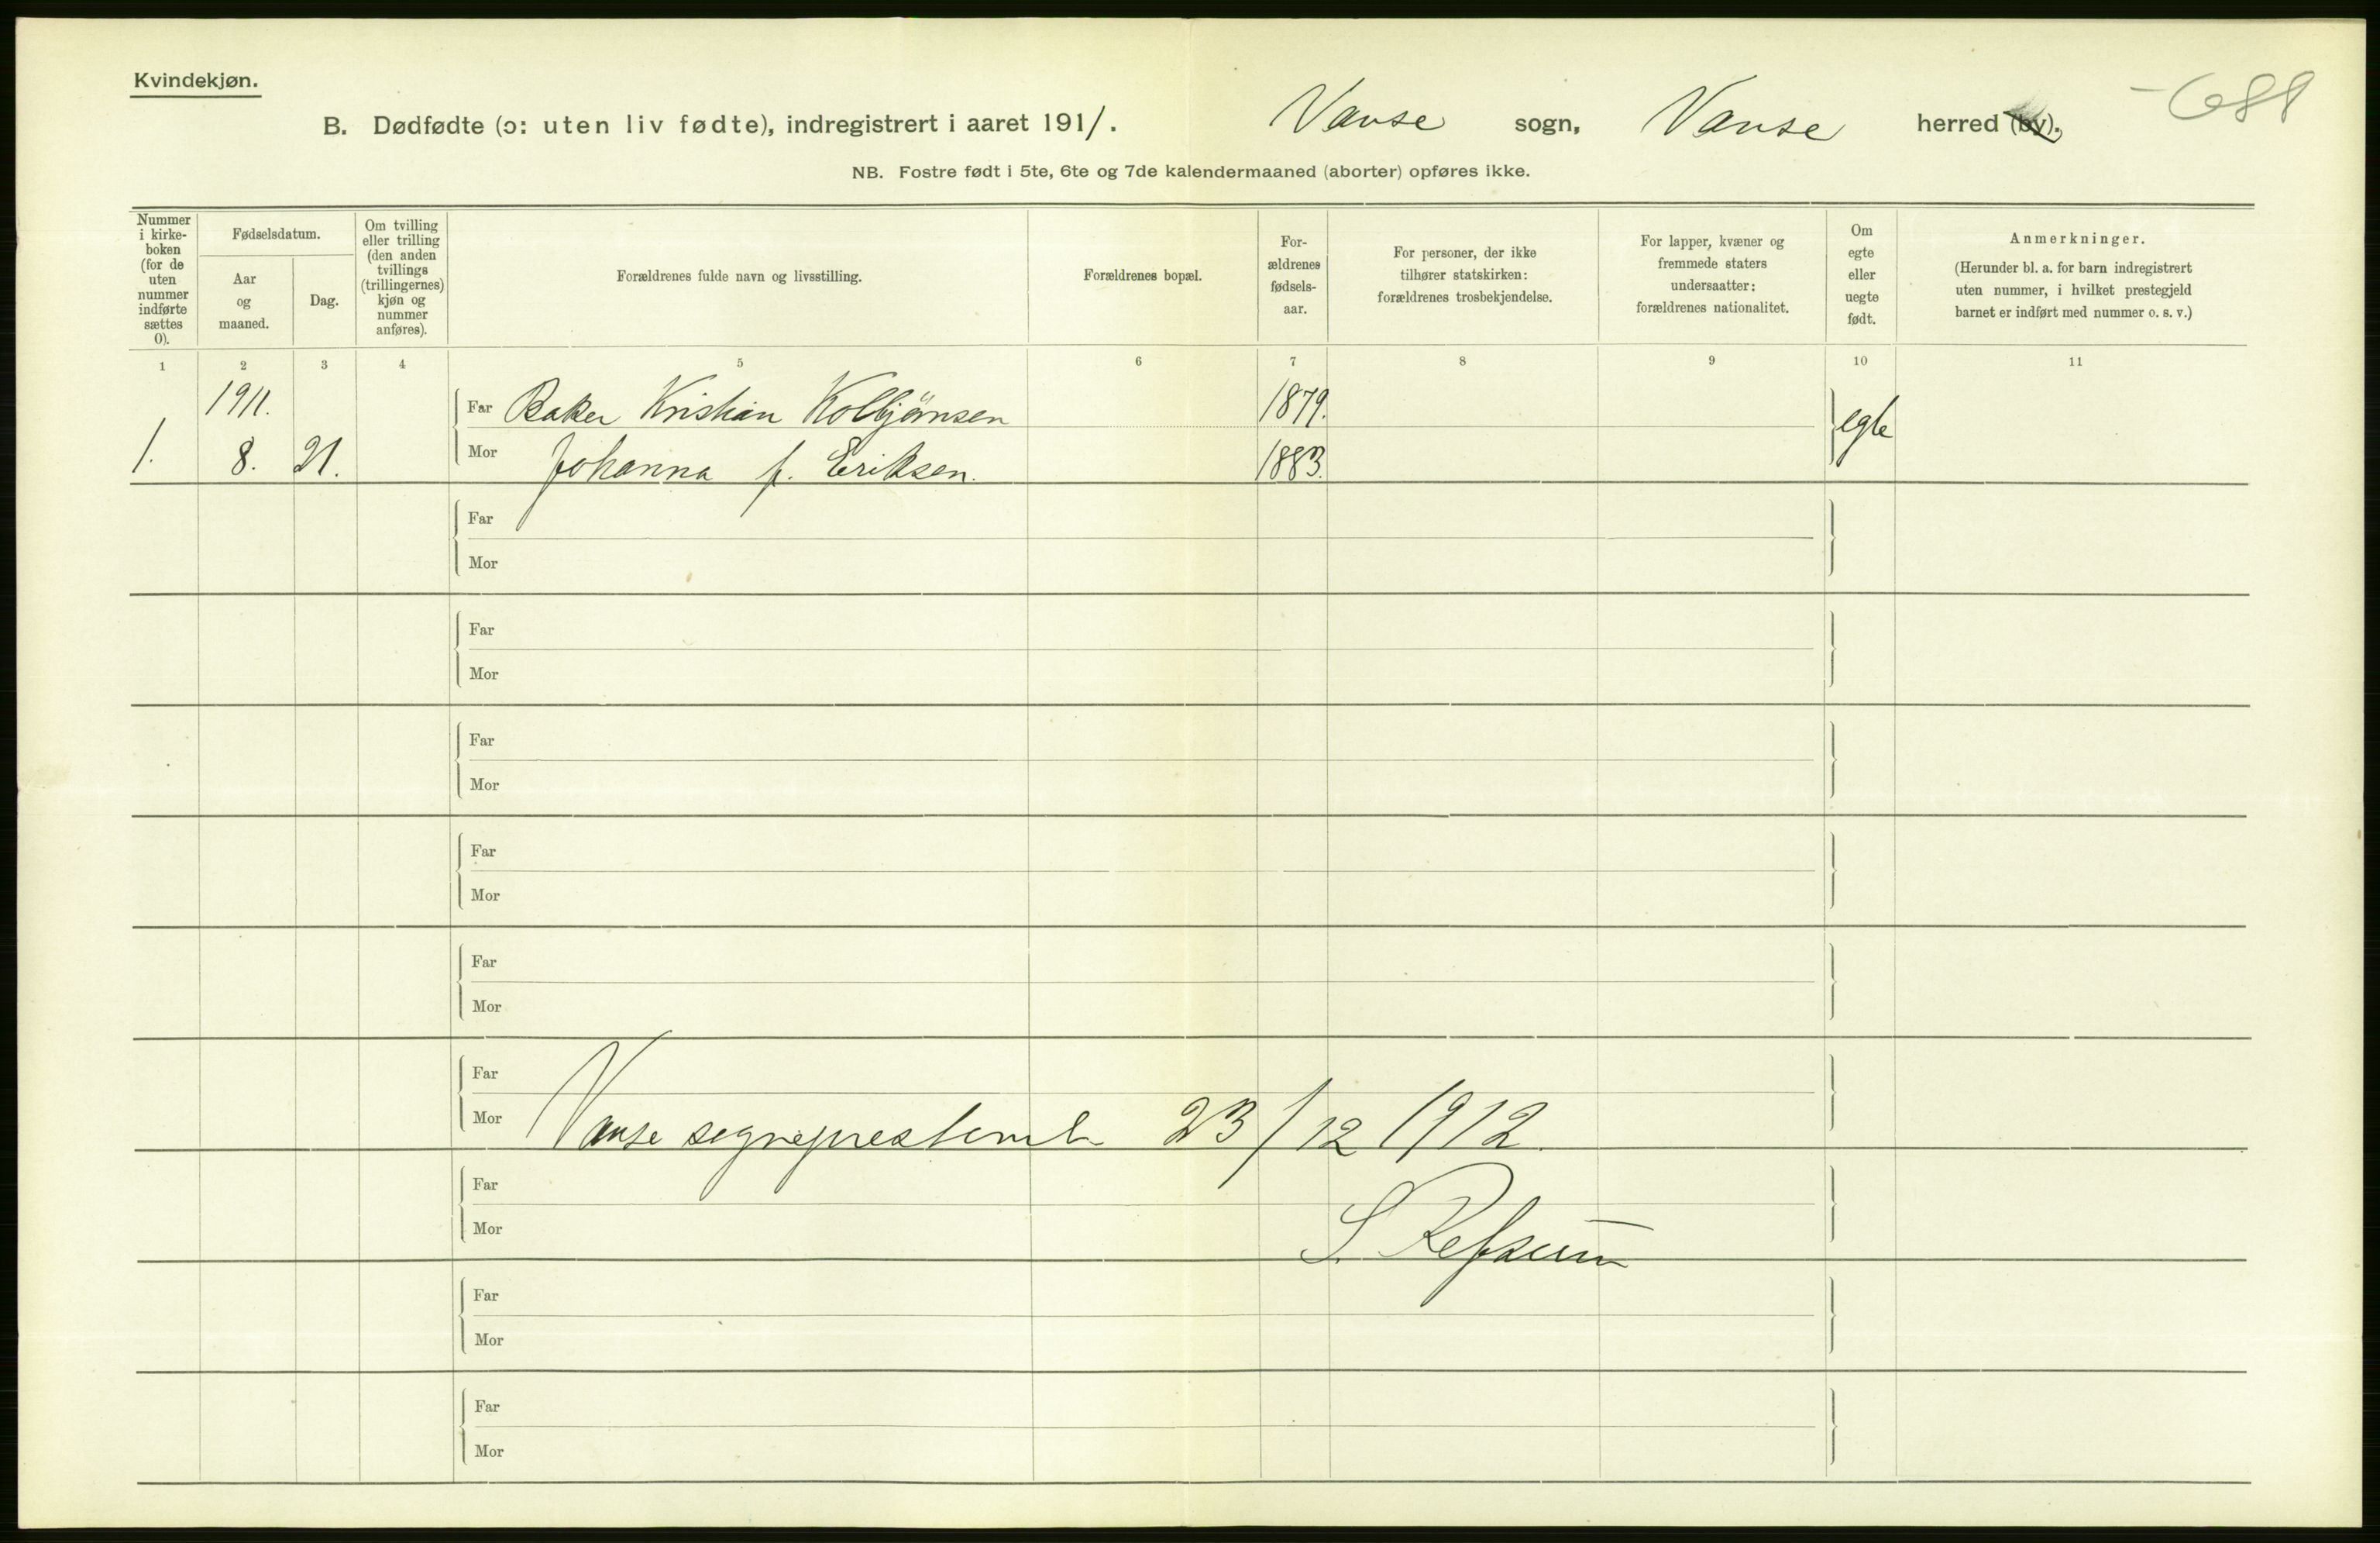 Kvindekjøn.
B. Dødfødte (ɔ: uten liv fødte), indregistrert i aaret 1911. Vanse sogn, Vanse herred (by).
-688
NB. Fostre født i 5te, 6te og 7de kalendermaaned (aborter) opføres ikke.
Nummer i kirke-boken (for de uten nummer indførte sættes 0).
Fødselsdatum.
Aar og maaned.
Dag.
Om tvilling eller trilling (den anden tvillings (trillingernes) kjøn og nummer anføres).
Forældrenes fulde navn og livsstilling.
Forældrenes bopæl.
For-ældrenes fødsels-aar.
For personer, der ikke tilhører statskirken: forældrenes trosbekjendelse.
For lapper, kvæner og fremmede staters undersaatter: forældrenes nationalitet.
Om egte eller uegte født.
Anmerkninger.
(Herunder bl. a. for barn indregistrert uten nummer, i hvilket prestegjeld barnet er indført med nummer o. s. v.)
1 2 3 4 5 6 7 8 9 10 11
1911. Far Baker Kristian Kolbjørnsen 1879. egte
1. 8. 21. Mor Johanna f. Eriksen. 1883.
Far
Mor
Far
Mor
Far
Mor
Far
Mor
Far
Mor
Far
Mor Vanse sogneprestemb 23/12 1912.
Far
Mor S. Refsum
Far
Mor
Far
Mor